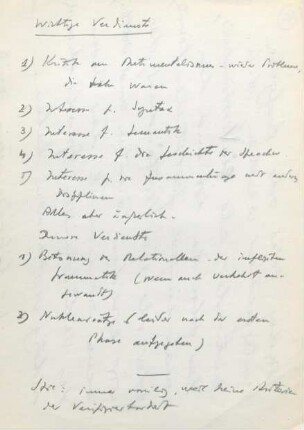 Wichtige Verdienste
1) Kritik am Antimentalismus - wieder Probleme,
die tabu waren
2) Interesse f. Syntax
3) Interesse f. Semantik
4) Interesse f. die Geschichte der Sprachw.
5) Interesse f. die Zusammenhänge mit anderen
Disziplinen
Alles aber äußerlich.
Innere Verdienste
1) Betonung des Relationellen - der impliziten
Grammatik (wenn auch verkehrt an-
gewandt)
2) (leider nach der ersten
Phase aufgegeben)
immer vorläufig, weil keine Kriterien
der Verifizierbarkeit